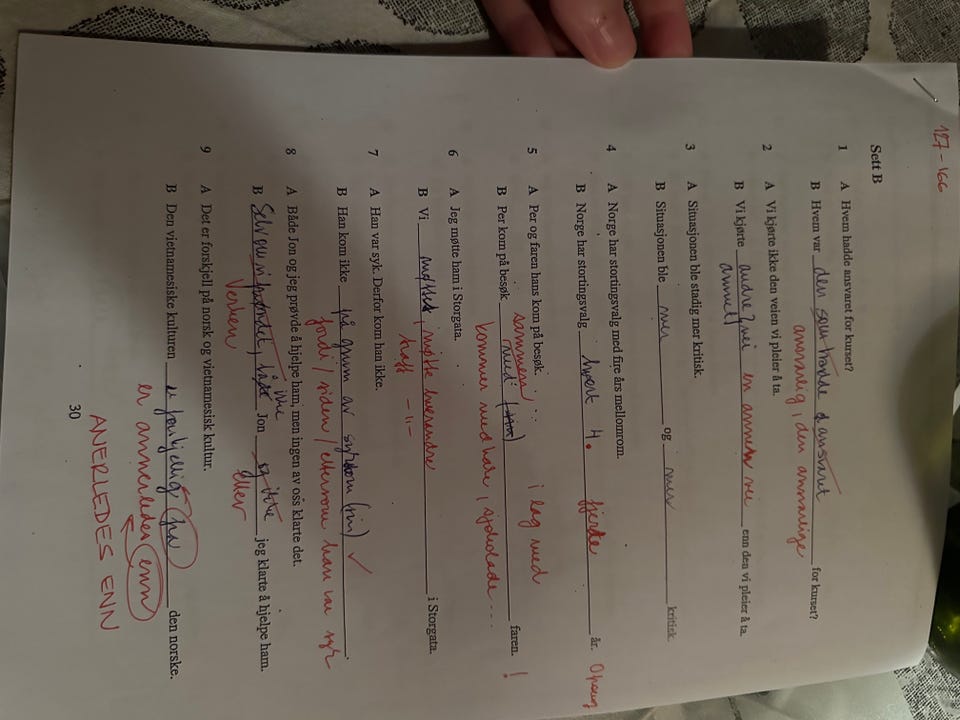 127-166
Sett B
1 A Hvem hadde ansvaret for kurset?
B Hvem var den som hadde ansvaret for kurset?
ansvarlig, den ansvarlige
2 A Vi kjørte ikke den veien vi pleier å ta.
B Vi kjørte andre? vei en annen vei enn den vi pleier å ta.
annet
3 A Situasjonen ble stadig mer kritisk.
B Situasjonen ble mer og mer kritisk.
4 A Norge har stortingsvalg med fire års mellomrom.
B Norge har stortingsvalg hvert 4. fjerde år.
5 A Per og faren hans kom på besøk.
sammen ... i lag med
B Per kom på besøk med faren. !
kommer med kake, sjokolade...
6 A Jeg møtte ham i Storgata.
B Vi møttes, møtte hverandre i Storgata.
traff -"-
7 A Han var syk. Derfor kom han ikke.
B Han kom ikke på grunn av sykdom (sin) ✓.
fordi / siden / ettersom han var syk
8 A Både Jon og jeg prøvde å hjelpe ham, men ingen av oss klarte det.
ikke
B Selv om vi prøvde, både Jon og ikke jeg klarte å hjelpe ham.
Verken eller
9 A Det er forskjell på norsk og vietnamesisk kultur.
B Den vietnamesiske kulturen er forskjellig fra den norske.
er annerledes enn
ANERLEDES ENN
30